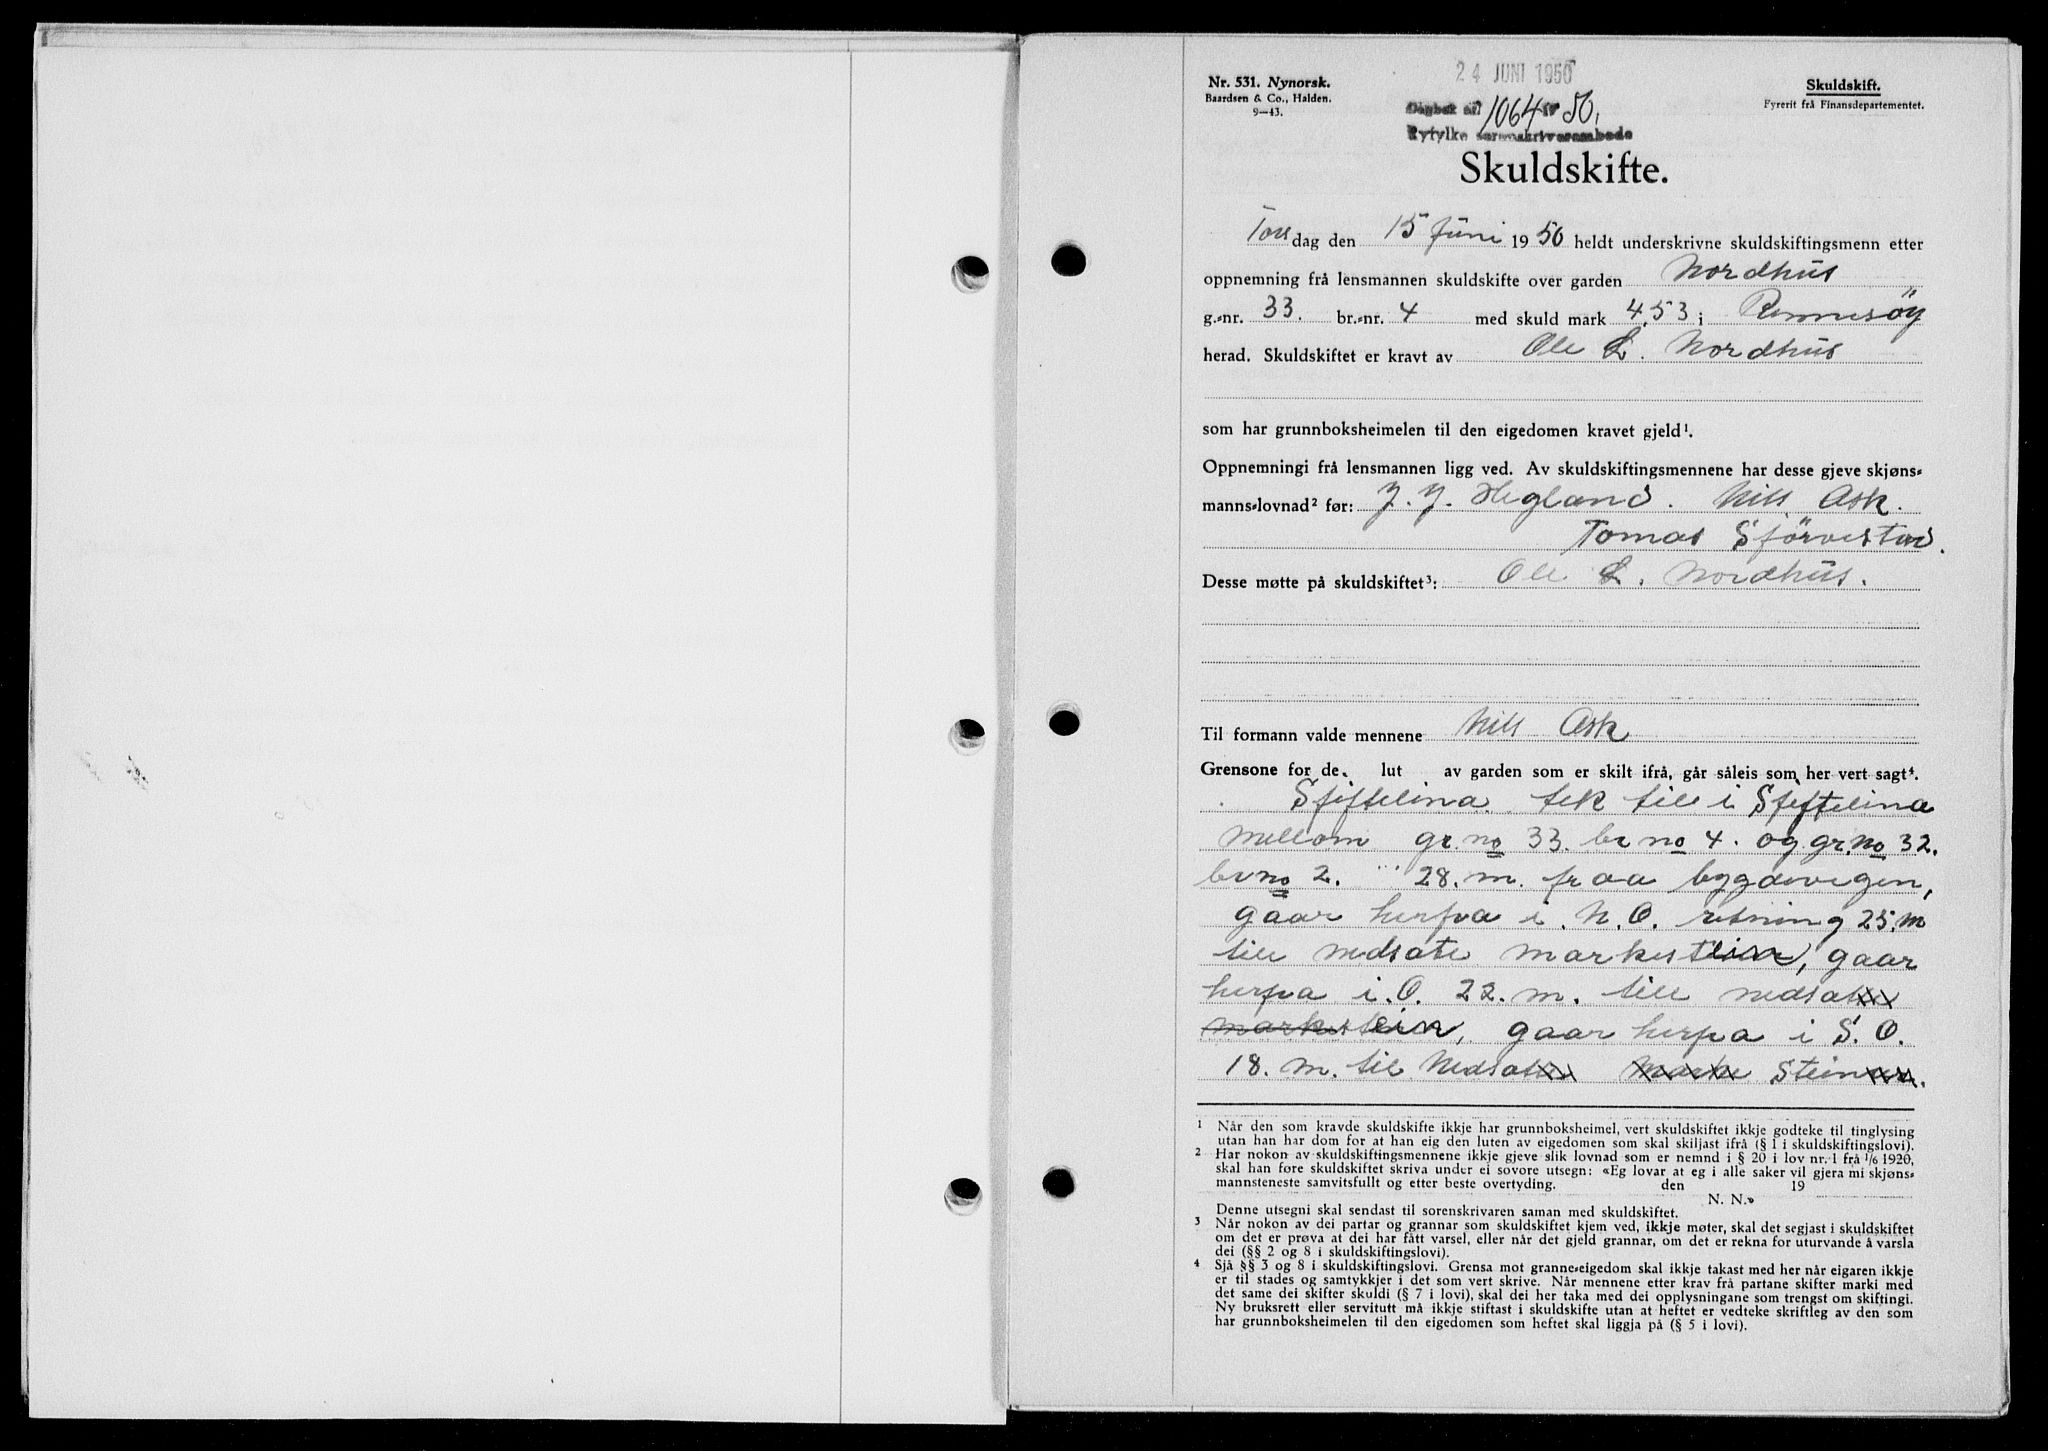 Nr. 531. Nynorsk.
Baardsen & Co., Halden.
9—43.
24 JUNI 1950
Dagbok nr. 1064 19 50.
Ryfylke sorenskrivarembede
Skuldskift.
Fyrerit frå Finansdepartementet.
Skuldskifte.
Torsdag den 15 Juni 1950 heldt underskrivne skuldskiftingsmenn etter
oppnemning frå lensmannen skuldskifte over garden Nordhus
g.-nr. 33. br.-nr. 4 med skuld mark 4,53 i Rennesöy
herad. Skuldskiftet er kravt av Ole L. Nordhus
som har grunnboksheimelen til den eigedomen kravet gjeld¹.
Oppnemningi frå lensmannen ligg ved. Av skuldskiftingsmennene har desse gjeve skjøns-
mannslovnad² før: J. J. Hegland. Nils Ask.
Tomas Sjörvestad.
Desse møtte på skuldskiftet³: Ole L. Nordhus.
Til formann valde mennene Nils Ask
Grensone for de lut av garden som er skilt ifrå, går såleis som her vert sagt⁴.
Stiftelina tek till i Stiftelina
mellom gr. no 33. br no 4. og gr. no 32.
br no 2. 28. m. fraa bygdevegen,
gaar herfra i. N. O. retning 25. m
till nedsate markestein, gaar
herfra i. O. 22. m. till nedsat
markestein, gaar herfra i S. O.
18. m. til Nedsat Marke Stein.
¹ Når den som kravde skuldskifte ikkje har grunnboksheimel, vert skuldskiftet ikkje godteke til tinglysing
utan han har dom for at han eig den luten av eigedomen som skal skiljast ifrå (§ 1 i skuldskiftingslovi).
² Har nokon av skuldskiftingsmennene ikkje gjeve slik lovnad som er nemnd i § 20 i lov nr. 1 frå 1/6 1920,
skal han føre skuldskiftet skriva under ei sovore utsegn: «Eg lovar at eg i alle saker vil gjera mi skjøns-
mannsteneste samvitsfullt og etter beste overtyding. den 19
N. N.»
Denne utsegni skal sendast til sorenskrivaren saman med skuldskiftet.
³ Når nokon av dei partar og grannar som skuldskiftet kjem ved, ikkje møter, skal det segjast i skuldskiftet
om det er prøva at dei har fått varsel, eller når det gjeld grannar, om det er rekna for uturvande å varsla
dei (§§ 2 og 8 i skuldskiftingslovi).
⁴ Sjå §§ 3 og 8 i skuldskiftingslovi. Grensa mot granne-eigedom skal ikkje takast med her når eigaren ikkje
er til stades og samtykkjer i det som vert skrive. Når mennene etter krav frå partane skifter marki med
det same dei skifter skuldi (§ 7 i lovi), skal dei her taka med dei opplysningane som trengst om skiftingi.
Ny bruksrett eller servitutt må ikkje stiftast i skuldskifte utan at heftet er vedteke skriftleg av den som
har grunnboksheimelen til den eigedomen som heftet skal liggja på (§ 5 i lovi).